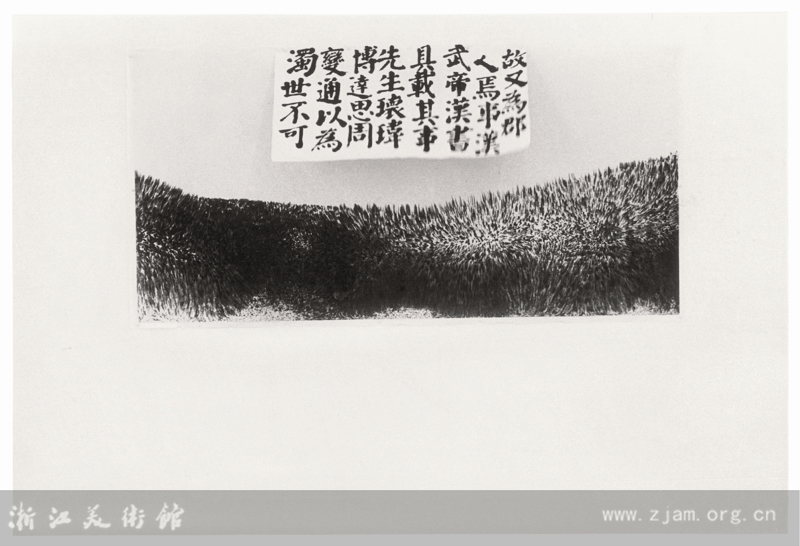 故又為郡
人焉事漢
武帝漢書
具載其事
先生瓌瑋
博達思周
變通以為
濁世不可
浙江美術館
www.zjam.org.cn